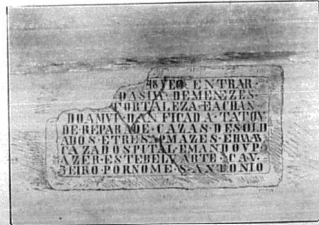 48 VEO ENTRAR·
DA SILVA DE MENEZES·
FORTALEZA·E ACHAN
DO A MVI DANFICADA·TATOV
DE REPARA DE CAZAS DE SOLD
ADOS·E TRES ARMAZES·E HVA
CAZA D OSPITAL·E MANDOV P
AZER·ESTE BELVARTE·CAV
ЈEIRO·POR NOME·S·ANTONIO